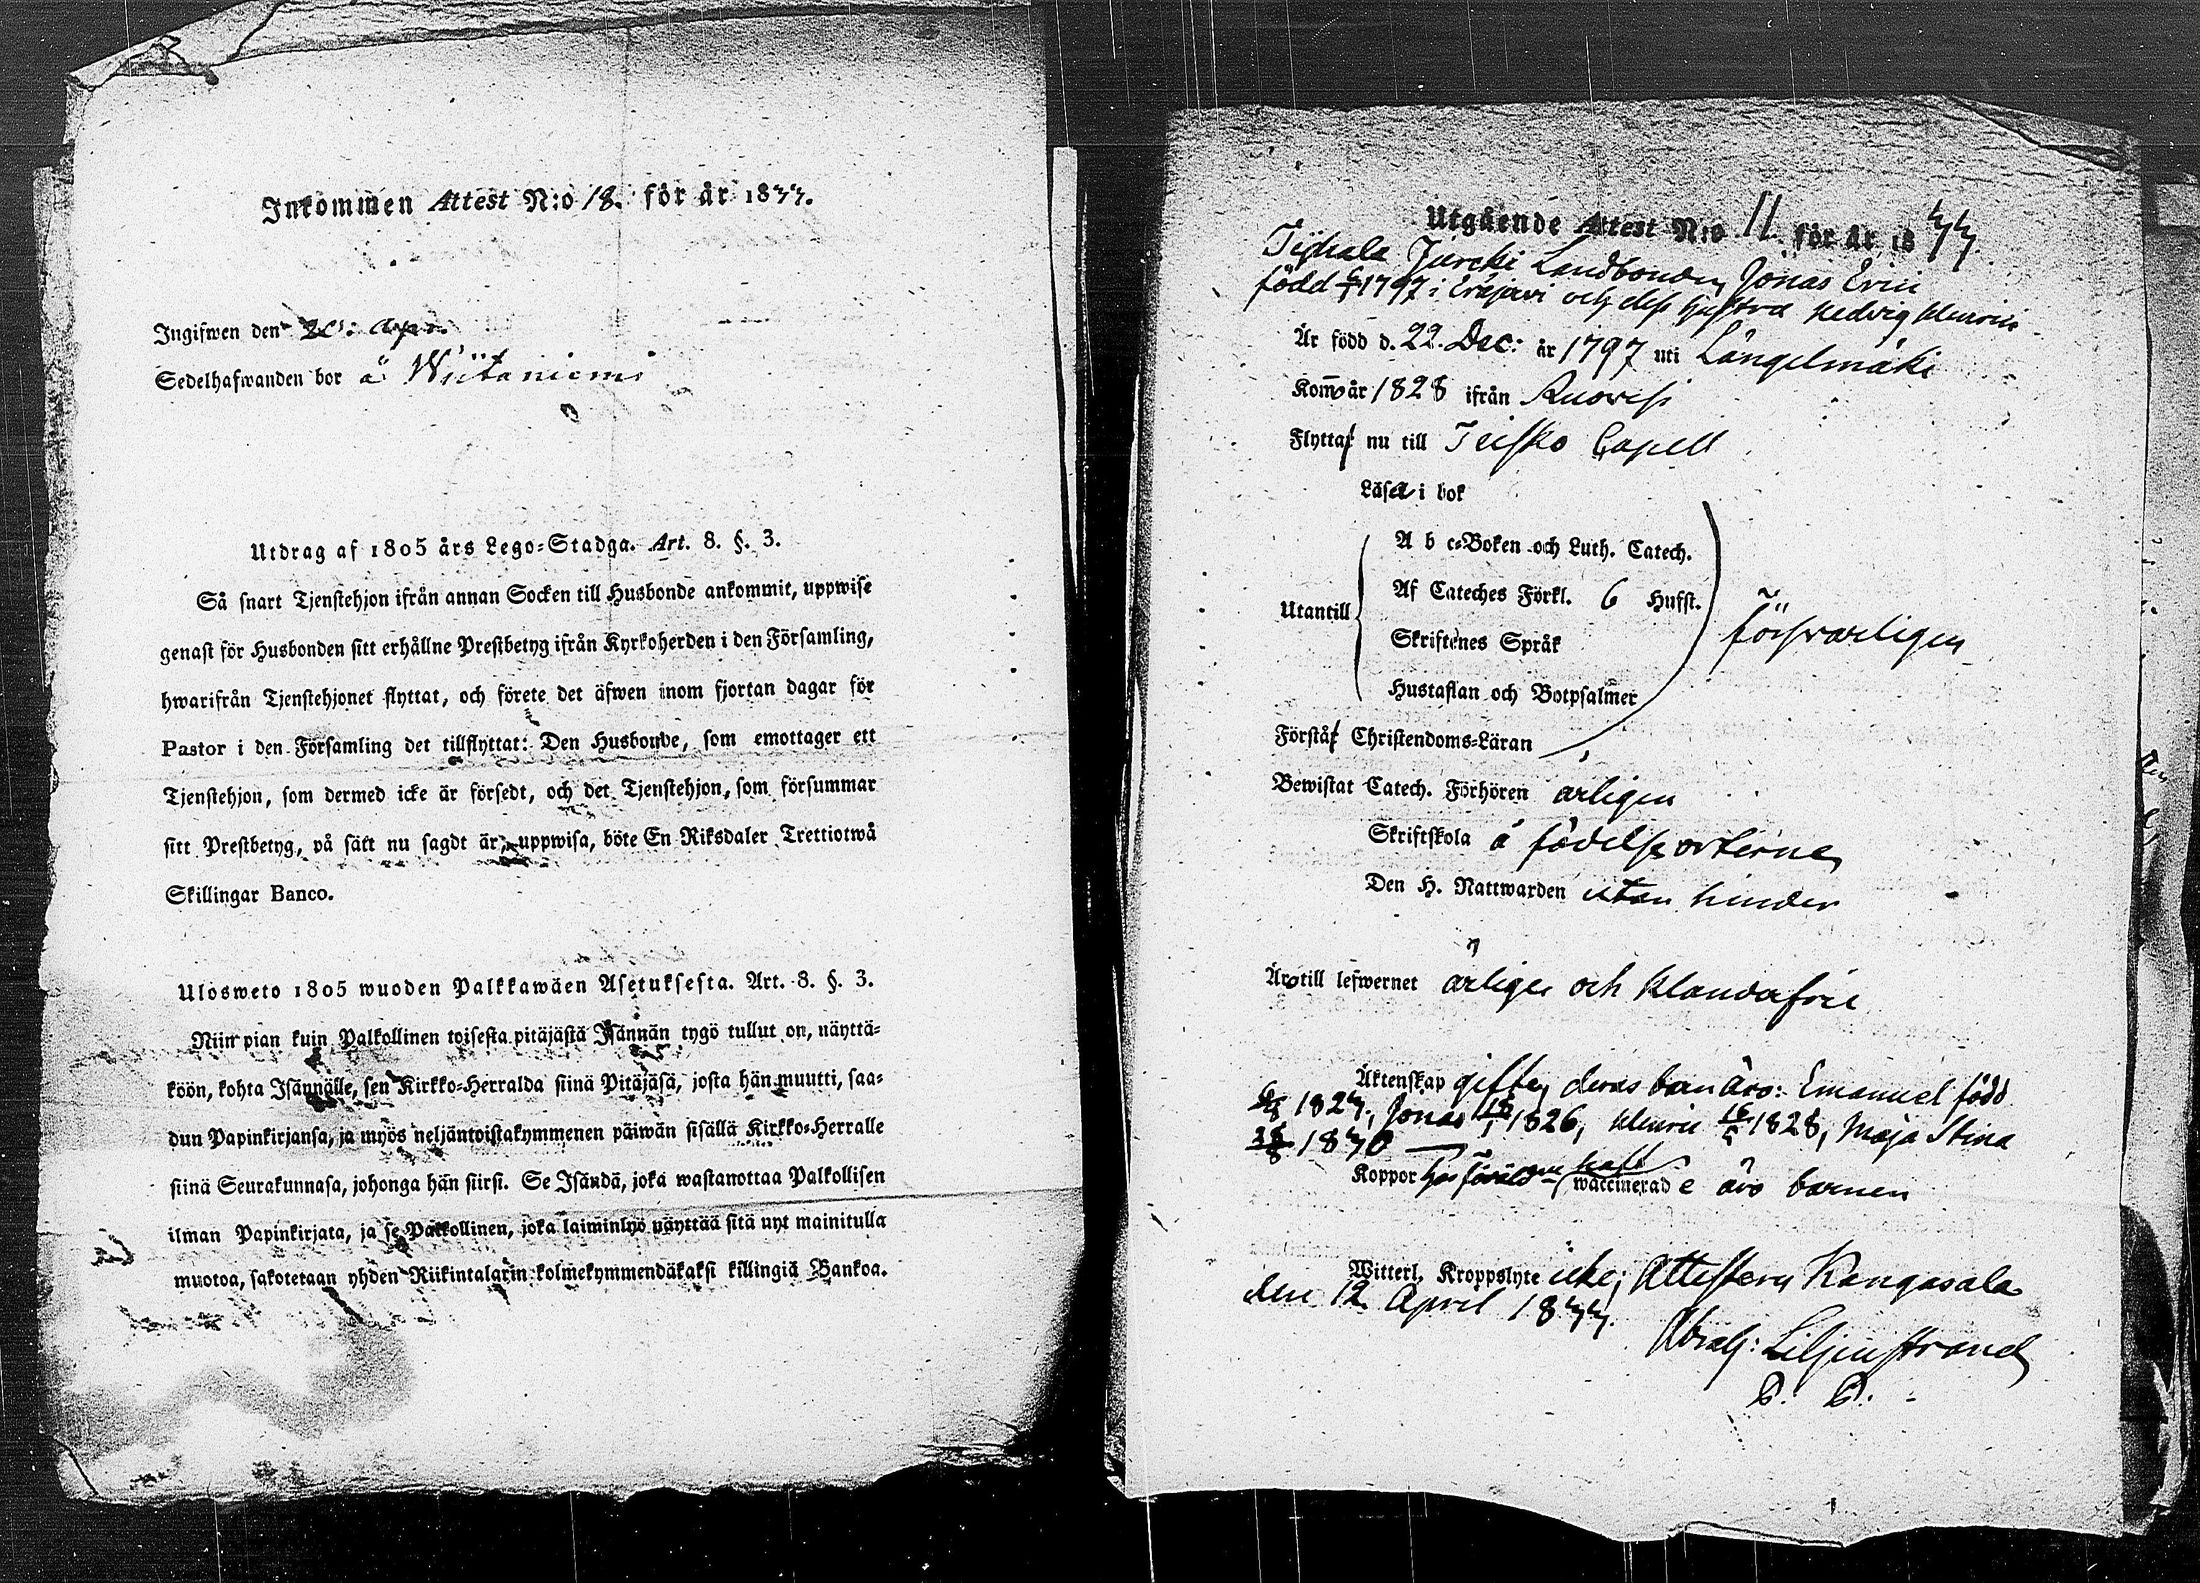 Inkommen Attest N:o 18. för år 1844.
Ingifwen den 20. Apr.
Sedelhafwanden bor å Wiitaniemi
Utdrag af 1805 års Lego-Stadga. Art. 8. §. 3.
Så snart Tjenstehjon ifrån annan Socken till Husbonde ankommit, uppwise
genast för Husbonden sitt erhållne Prestbetyg ifrån Kyrkoherden i den Församling,
hwarifrån Tjenstehjonet flyttat, och förete det äfwen inom fjortan dagar för
Pastor i den Församling det tillflyttat: Den Husbonde, som emottager ett
Tjenstehjon, som dermed icke är försedt, och det Tjenstehjon, som försummar
sitt Prestbetyg, på sätt nu sagdt är, uppwisa, böte En Riksdaler Trettiotwå
Skillingar Banco.
Ulosweto 1805 wuoden Palkkawäen Asetuksesta. Art. 8. §. 3.
Niin pian kuin Palkollinen toisesta pitäjästä Isännän tygö tullut on, näyttä-
köön, kohta Isännälle, sen Kirkko-Herralda siinä Pitäjäsä, josta hän muutti, saa-
dun Papinkirjansa, ja myös neljäntoistakymmenen päiwän sisällä Kirkko-Herralle
siinä Seurakunnasa, johonga hän siirsi. Se Isändä, joka wastanottaa Palkollisen
ilman Papinkirjata, ja se Palkollinen, joka laiminlyö näyttää sitä nyt mainitulla
muotoa, sakotetaan yhden Riikintalarin kolmekymmendäkaksi killingiä Bankoa.
Utgående Attest N:o 11. för år 1844.
Jussila Landbonden Jonas Eric
född 1797 i Eräjerfvi och dess hustru Hedvig Henric
Är född d. 22. Dec: år 1797 uti Längelmäki
Kom̅o år 1828 ifrån Ruovesi
Flytta nu till Teisko Capell
Läsa i bok
A b c-Boken och Luth. Catech.
Utantill Af Cateches Förkl. 6 Hufst. försvarligen
Skriftenes Språk
Hustaflan och Botpsalmer
Förstå Christendoms-Läran
Bewistat Catech. Förhören årligen
Skriftskola å födelseorterne
Den H. Nattwarden utan hinder
Äro till lefwernet ärlige och klanderfrie
Äktenskap gifte, deras barn äro: Emanuel född
1824, Jonas 1826, Henric 1828, Maja Stina
1840
Koppor föräldrarne haft waccinerade äro barnen
Witterl. Kroppslyte icke, Attestera Kangasala
den 12 April 1844.
Abrah: Liljenstrand